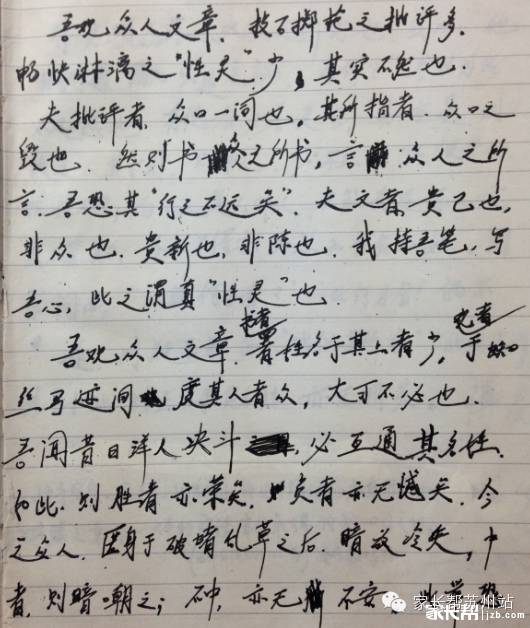 吾观众人文章，投石掷枪之批评多，
畅快淋漓之“性灵”少，其实不然也．
夫批评者，众口一词也，其所指者，众口之
毁也．然则书众人之所书，言众人之所
言，吾恐其“行之不远矣”．夫文章，贵己也，
非众也．贵新也，非陈也．我持吾笔，写
吾心，此之谓真“性灵”也
吾观众人文章，署姓名于其上者少，于
丝写迹间度其人者众，大可不必也．
吾闻昔日洋人决斗，必互通其名姓．
如此，则胜者亦荣矣，负者亦无憾矣．今
之众人，匿身于破墙乱草之后，暗放冷矢，中
者，则暗嘲之；不中，亦无不安
家长帮苏州站
家长帮 jzb.com